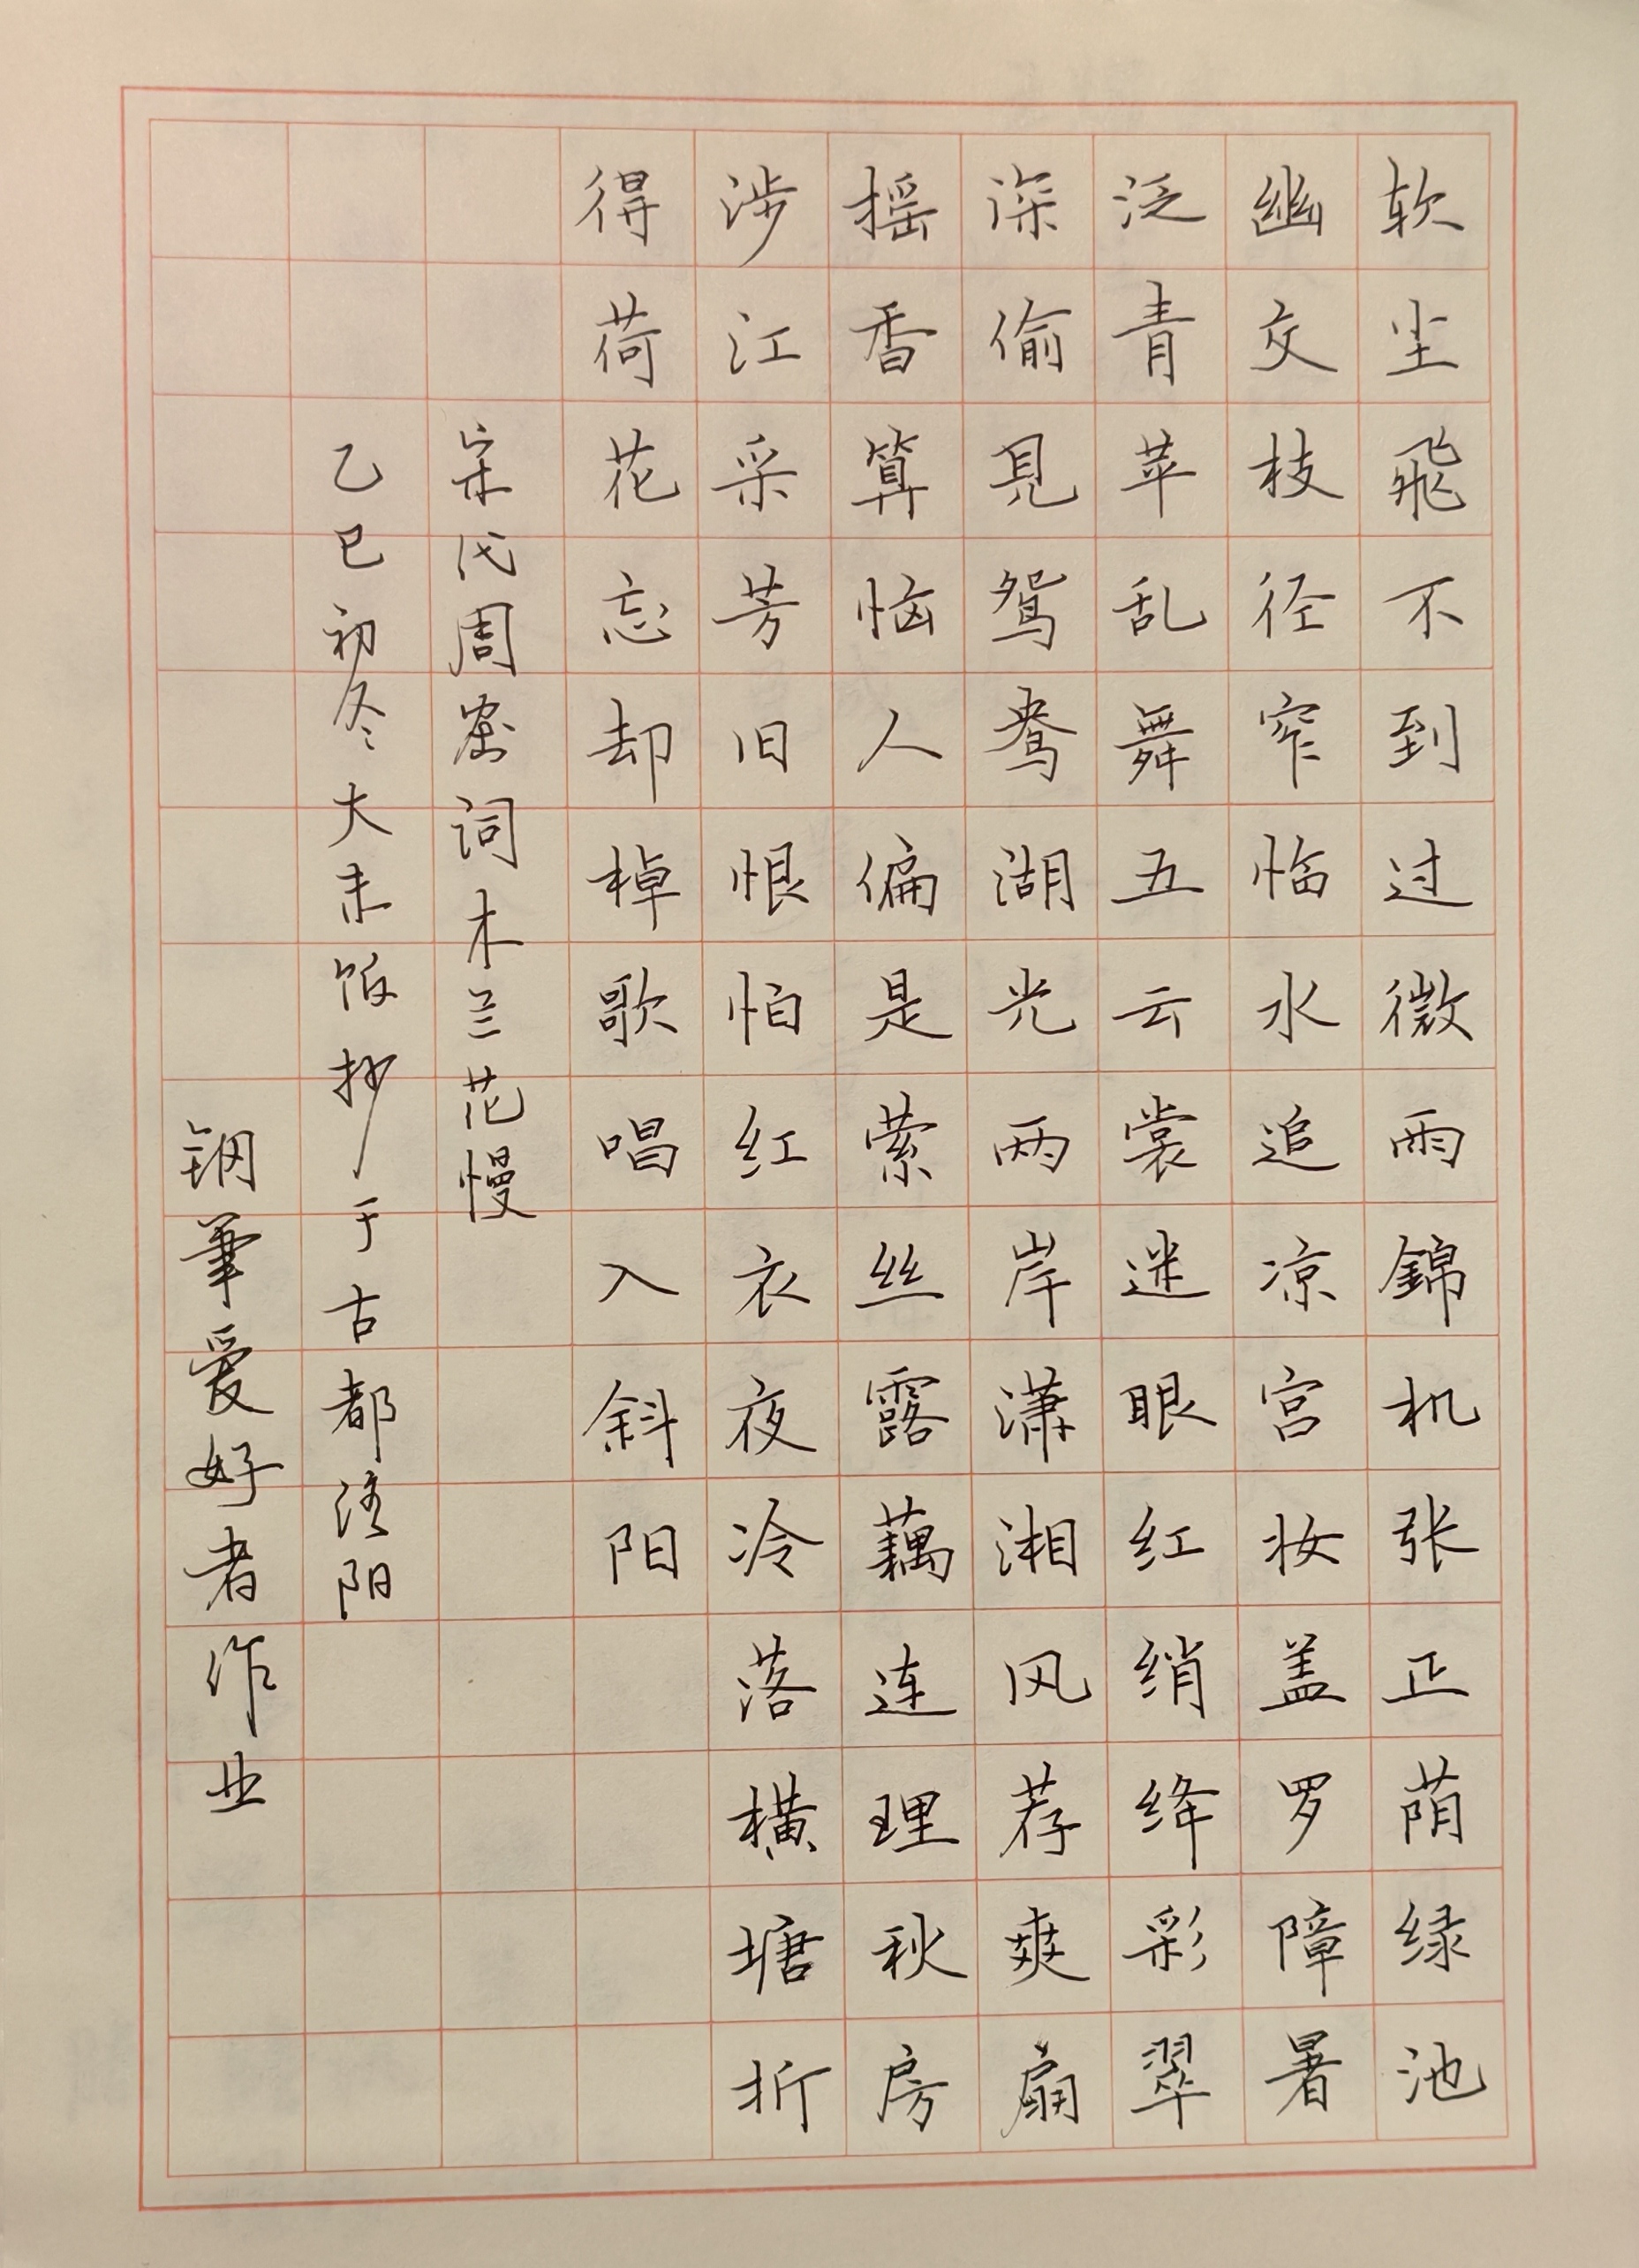 软尘飛不到过微雨錦机张正荫绿池
幽交枝径窄临水追凉宫妆盖罗障暑
泛青苹乱舞五云裳迷眼红绡绛彩翠
深偷見鸳鸯湖光两岸潇湘风荐爽扇
摇香算恼人偏是萦丝露藕连理秋房
涉江采芳旧恨怕红衣夜冷落横塘折
得荷花忘却棹歌唱入斜阳
宋代周密词木兰花慢
乙巳初冬大抄于古都洛阳
钢筆爱好者作业